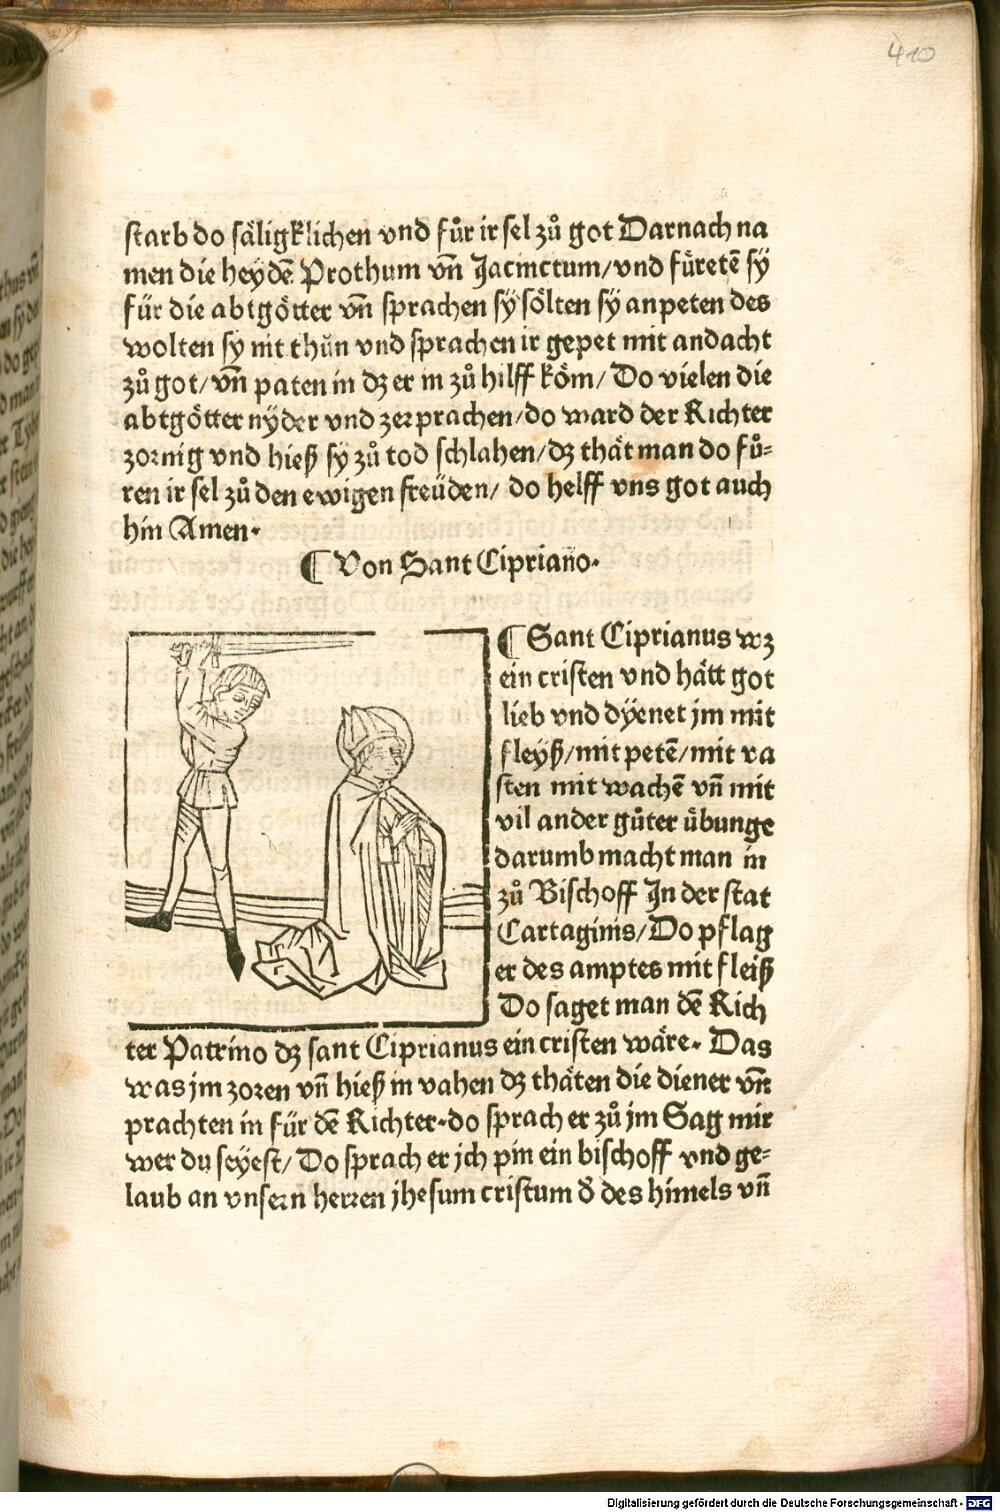 410
starb do säligklichen vnd fůr ir sel zů got Darnach na
men die heydē Prothum vn̄ Jacinctum/vnd fůretē sÿ
für die abtgötter vn̄ sprachen sÿ sölten sÿ anpeten des
wolten sy nit thůn vnd sprachen ir gepet mit andacht
zů got/vn̄ paten in dz er in zů hilff köm/Do vielen die
abtgötter nÿder vnd zerprachen/do ward der Richter
zornig vnd hieß sy zů tod schlahen/dz thät man do fů⸗
ren ir sel zů den ewigen freüden/ do helff vns got auch
hin Amen.
¶ Von Sant Cipriano.
¶ Sant Ciprianus wz
ein cristen vnd hätt got
lieb vnd dÿenet jm mit
fleyß/mit petē/mit va
sten mit wachē vn̄ mit
vil ander gůter übunge
darumb macht man in
zů Bischoff In der stat
Cartaginis/Do pflag
er des amptes mit fleiß
Do saget man dē Rich
ter Patrino dz sant Ciprianus ein cristen wäre. Das
was jm zoren vn̄ hieß in vahen dz thäten die diener vn̄
prachten in für dē Richter.do sprach er zů jm Sag mir
wer du seyest/Do sprach er jch pin ein bischoff vnd ge⸗
laub an vnsern herren jhesum cristum d̄ des himels vn̄
Digitalisierung gefördert durch die Deutsche Forschungsgemeinschaft - DFG